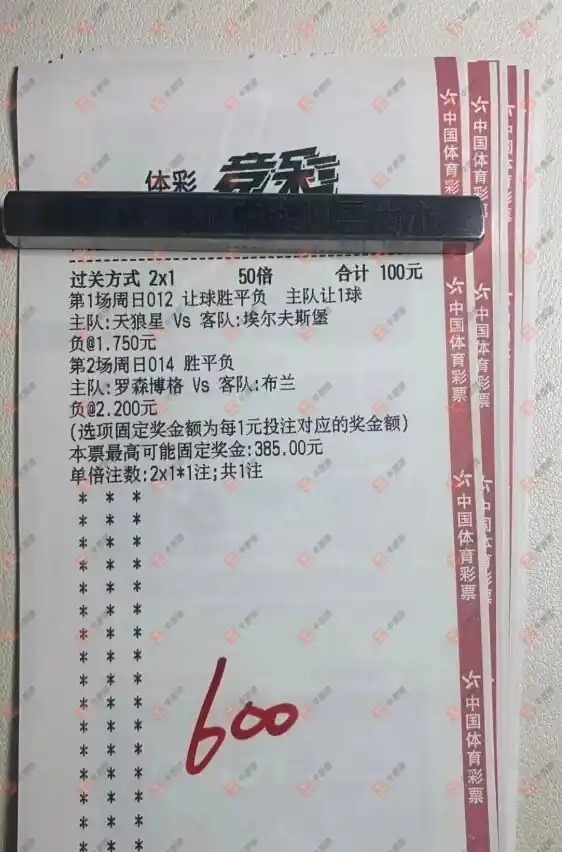 体彩 竞彩
过关方式 2x1 50倍 合计 100元
第1场周日012 让球胜平负 主队让1球
主队:天狼星 Vs 客队:埃尔夫斯堡
负@1.750元
第2场周日014 胜平负
主队:罗森博格 Vs 客队:布兰
负@2.200元
(选项固定奖金额为每1元投注对应的奖金额)
本票最高可能固定奖金:385.00元
单倍注数:2x1*1注;共1注
* * *
* * *
* * *
* * *
* * *
* * *
* * *
* * *
* * *
* * *
* * *
* * *
* * *
* * *
* * *
* * *
600
中国体育彩
中国体育彩票
中国体育彩票
中国体育彩票
中国体育彩
中国体育彩票
中国体育彩票